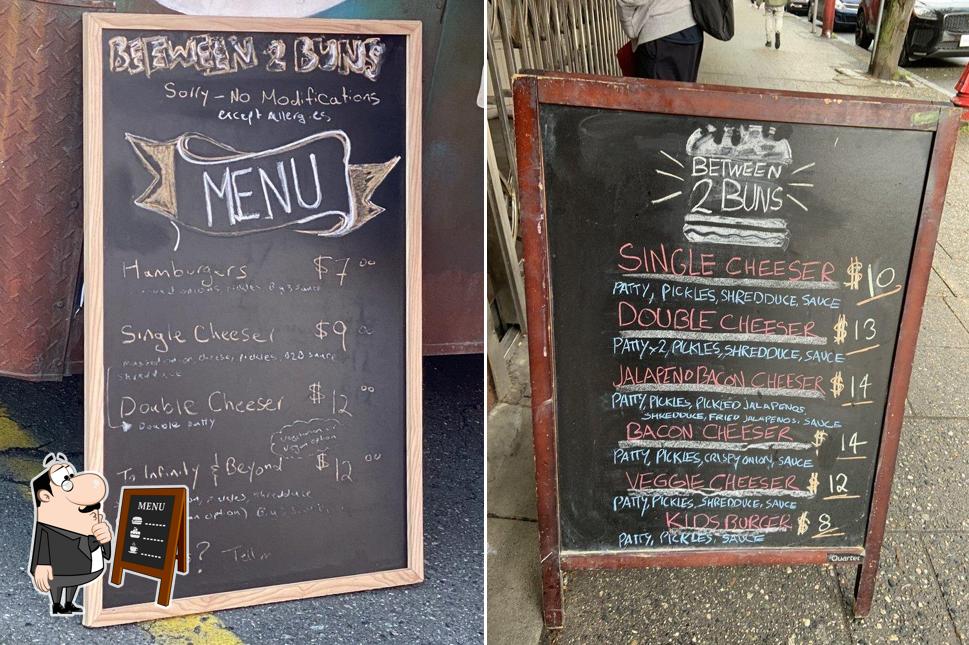 BETWEEN 2 BUNS
Sorry - No Modifications
except allergies
MENU
Hamburgers $7 00
onions, pickles, B2B sauce
Single Cheeser $9 00
cheese, pickles, B2B sauce
shredduce
Double Cheeser $12 00
Double patty
vegetarian or
vegan option
To Infinity & Beyond $12 00
pickles, shredduce
option)
? Tell
MENU
BETWEEN
2 BUNS
SINGLE CHEESER $10
PATTY, PICKLES, SHREDDUCE, SAUCE
DOUBLE CHEESER $13
PATTY x 2, PICKLES, SHREDDUCE, SAUCE
JALAPENO BACON CHEESER $14
PATTY, PICKLES, PICKLED JALAPENOS,
SHREDDUCE, FRIED JALAPENOS, SAUCE
BACON CHEESER $14
PATTY, PICKLES, CRISPY ONION, SAUCE
VEGGIE CHEESER $12
PATTY, PICKLES, SHREDDUCE, SAUCE
KIDS BURGER $8
PATTY, PICKLES, SAUCE
Quartet